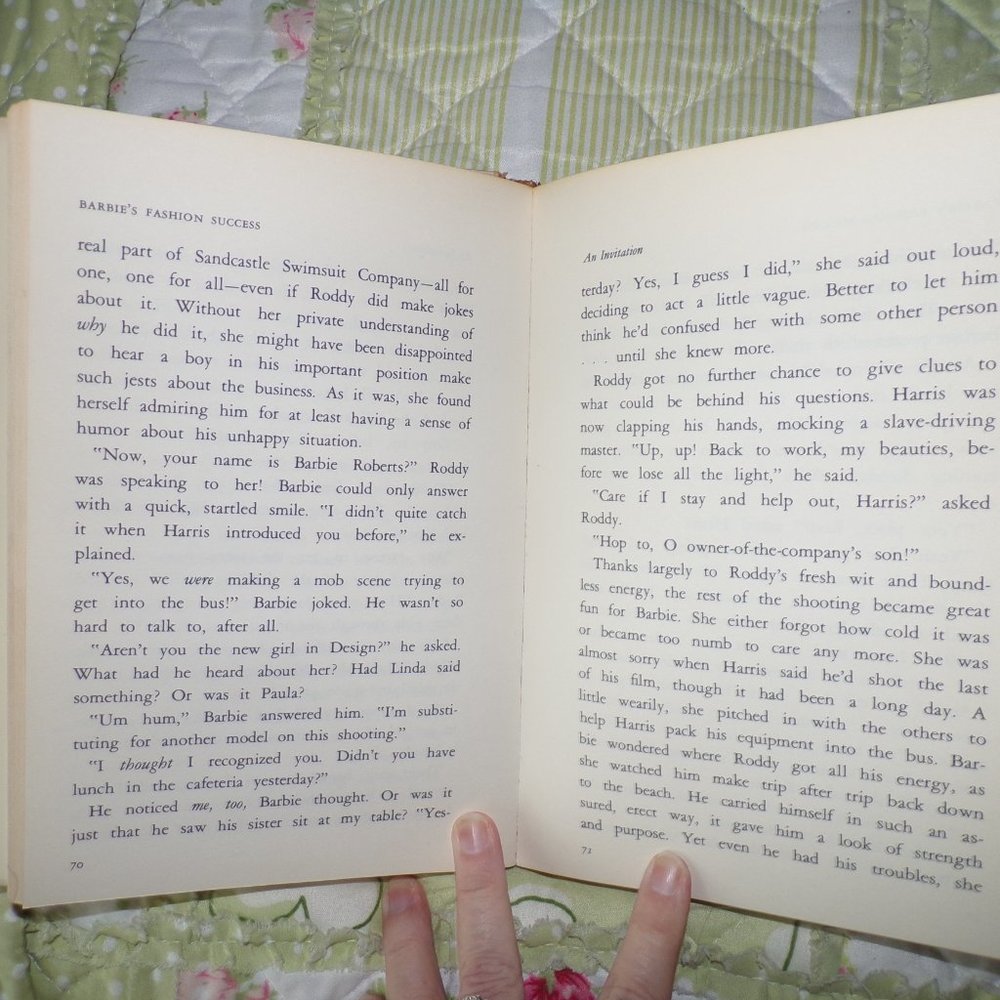 BARBIE'S FASHION SUCCESS
real part of Sandcastle Swimsuit Company—all for
one, one for all—even if Roddy did make jokes
about it. Without her private understanding of
why he did it, she might have been disappointed
to hear a boy in his important position make
such jests about the business. As it was, she found
herself admiring him for at least having a sense of
humor about his unhappy situation.
"Now, your name is Barbie Roberts?" Roddy
was speaking to her! Barbie could only answer
with a quick, startled smile. "I didn't quite catch
it when Harris introduced you before," he ex-
plained.
"Yes, we were making a mob scene trying to
get into the bus!" Barbie joked. He wasn't so
hard to talk to, after all.
"Aren't you the new girl in Design?" he asked.
What had he heard about her? Had Linda said
something? Or was it Paula?
"Um hum," Barbie answered him. "I'm substi-
tuting for another model on this shooting."
"I thought I recognized you. Didn't you have
lunch in the cafeteria yesterday?"
He noticed me, too, Barbie thought. Or was it
just that he saw his sister sit at my table? "Yes-
70
An Invitation
terday? Yes, I guess I did," she said out loud,
deciding to act a little vague. Better to let him
think he'd confused her with some other person
. . . until she knew more.
Roddy got no further chance to give clues to
what could be behind his questions. Harris was
now clapping his hands, mocking a slave-driving
master. "Up, up! Back to work, my beauties, be-
fore we lose all the light," he said.
"Care if I stay and help out, Harris?" asked
Roddy.
"Hop to, O owner-of-the-company's son!"
Thanks largely to Roddy's fresh wit and bound-
less energy, the rest of the shooting became great
fun for Barbie. She either forgot how cold it was
or became too numb to care any more. She was
almost sorry when Harris said he'd shot the last
of his film, though it had been a long day. A
little wearily, she pitched in with the others to
help Harris pack his equipment into the bus. Bar-
bie wondered where Roddy got all his energy, as
she watched him make trip after trip back down
to the beach. He carried himself in such an as-
sured, erect way, it gave him a look of strength
and purpose. Yet even he had his troubles, she
71